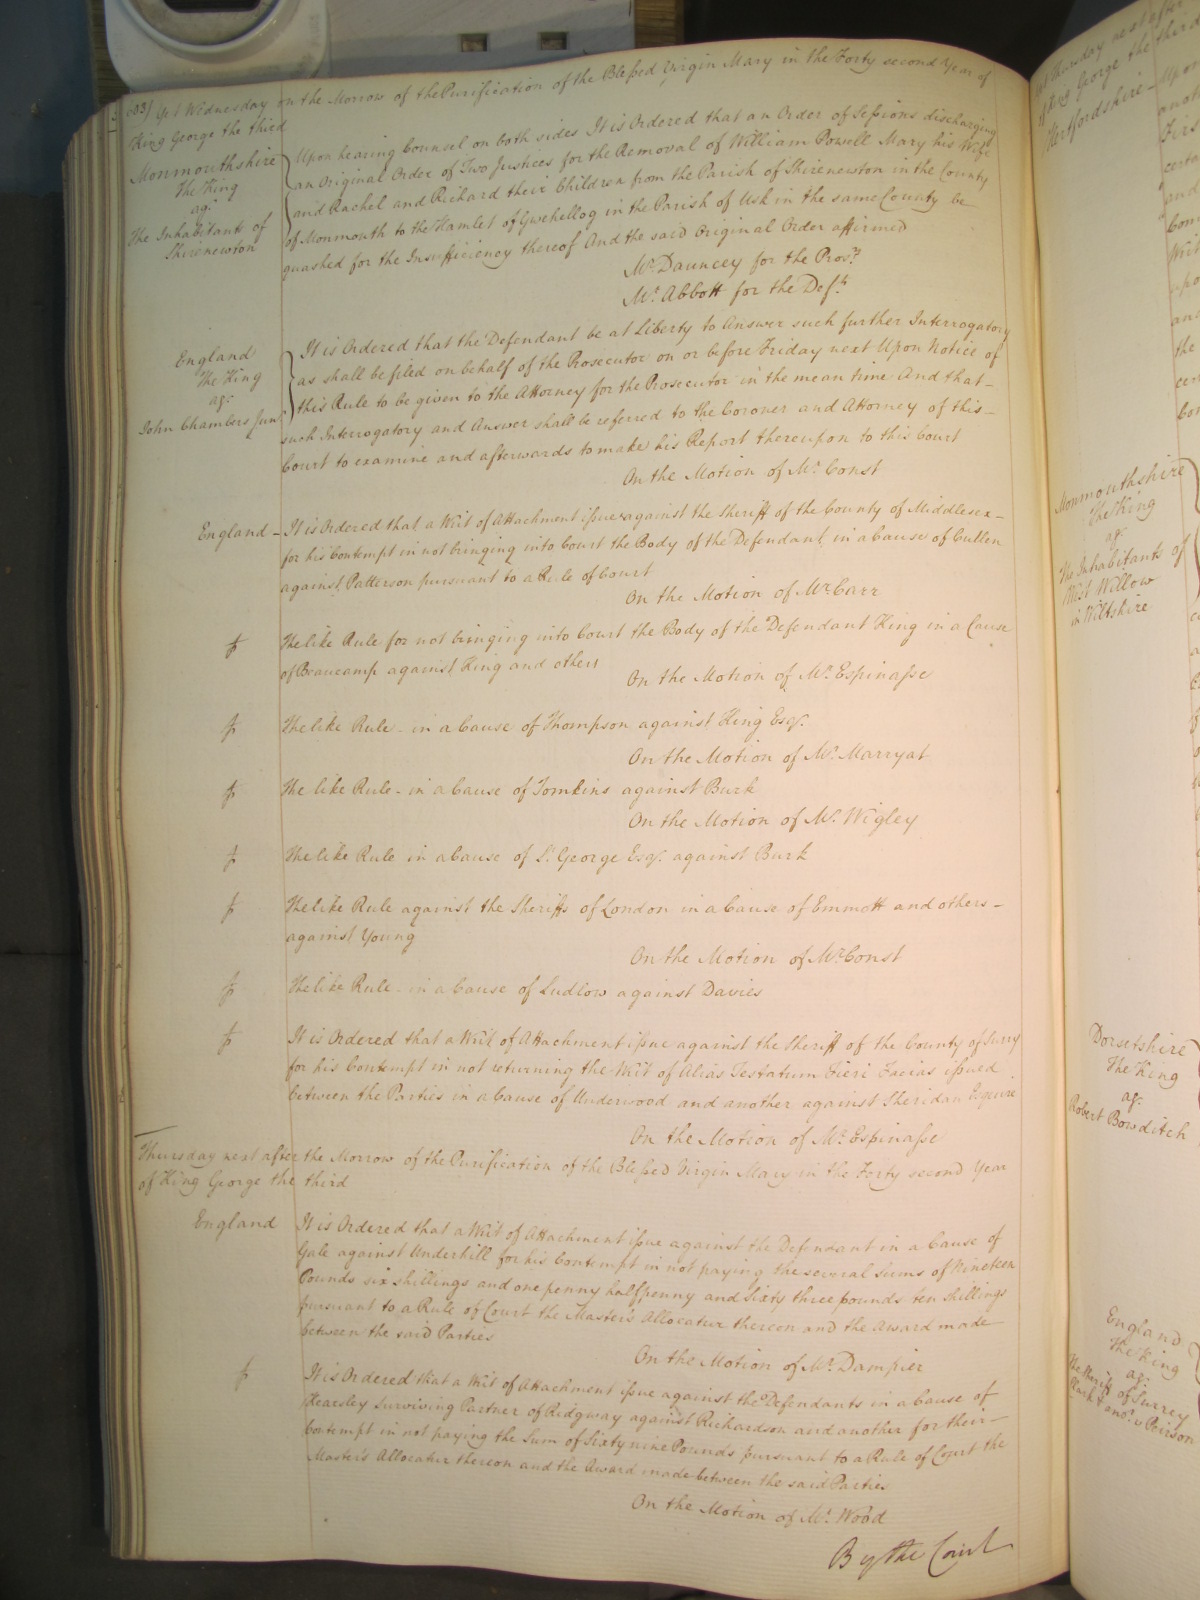 Yet Wednesday on the Morrow of the Purification of the Blessed Virgin Mary in the Forty second Year of
King George the third
Monmouthshire
The King
agt.
The Inhabitants of
Shirenewton
Upon hearing Counsel on both sides It is Ordered that an Order of Sessions discharging
an Original Order of Two Justices for the Removal of William Powell Mary his Wife
and Rachel and Richard their Children from the Parish of Shirenewton in the County
of Monmouth to the Hamlet of Gwehellog in the Parish of Usk in the same County be
quashed for the Insufficiency thereof And the said Original Order affirmed
Mr. Dauncey for the Prosr.
Mr. Abbott for the Deft.
England
The King
agt.
John Chambers Junr.
It is Ordered that the Defendant be at Liberty to Answer such further Interrogatory
as shall be filed on behalf of the Prosecutor on or before Friday next Upon Notice of
this Rule to be given to the Attorney for the Prosecutor in the mean time And that
such Interrogatory and Answer shall be referred to the Coroner and Attorney of this
Court to examine and afterwards to make his Report thereupon to this Court
On the Motion of Mr. Const
England - It is Ordered that a Writ of Attachment issue against the Sheriff of the County of Middlesex
for his Contempt in not bringing into Court the Body of the Defendant in a Cause of Cullen
against Patterson pursuant to a Rule of Court
On the Motion of Mr. Carr
The like Rule for not bringing into Court the Body of the Defendant King in a Cause
of Beaucamp against King and others
On the Motion of Mr. Espinasse
The like Rule - in a Cause of Thompson against King Esqr.
On the Motion of Mr. Marryat
The like Rule - in a Cause of Tomkins against Burk
On the Motion of Mr. Wigley
The like Rule in a Cause of St. George Esqr. against Burk
The like Rule against the Sheriffs of London in a Cause of Emmott and others -
against Young
On the Motion of Mr. Const
The like Rule - in a Cause of Ludlow against Davies
It is Ordered that a Writ of Attachment issue against the Sheriff of the County of Surry
for his Contempt in not returning the Writ of Alias Testatum Fieri Facias issued
between the Parties in a Cause of Underwood and another against Sheridan Esquire
On the Motion of Mr. Espinasse
Thursday next after the Morrow of the Purification of the Blessed Virgin Mary in the Forty second Year
of King George the third
England
It is Ordered that a Writ of Attachment issue against the Defendant in a Cause of
Gale against Underhill for his Contempt in not paying the several Sums of Nineteen
Pounds six shillings and one penny halfpenny and Sixty three pounds ten shillings
pursuant to a Rule of Court the Master's Allocatur thereon and the Award made
between the said Parties
On the Motion of Mr. Dampier
It is Ordered that a Writ of Attachment issue against the Defendants in a Cause of
Kearsley Surviving Partner of Ridgway against Richardson and another for their -
Contempt in not paying the Sum of Sixty nine Pounds pursuant to a Rule of Court the
Master's Allocatur thereon and the Award made between the said Parties
On the Motion of Mr. Wood
By the Court
Yet Thursday next after
of King George the third
Hertfordshire -
Monmouthshire
The King
agt.
The Inhabitants of
West Willow
in Wiltshire
Dorsetshire
The King
agt.
Robert Bowditch
England
The King
agt.
The Sheriff of Surrey